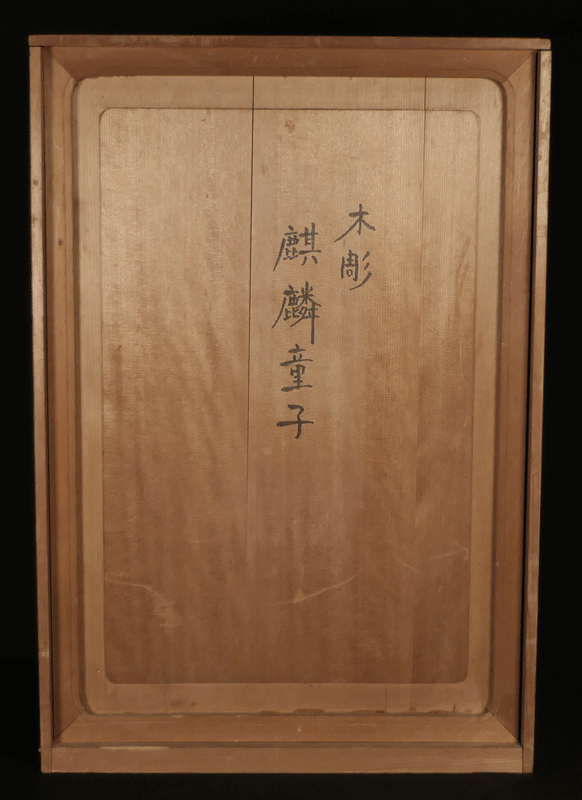 木彫
麒麟童子